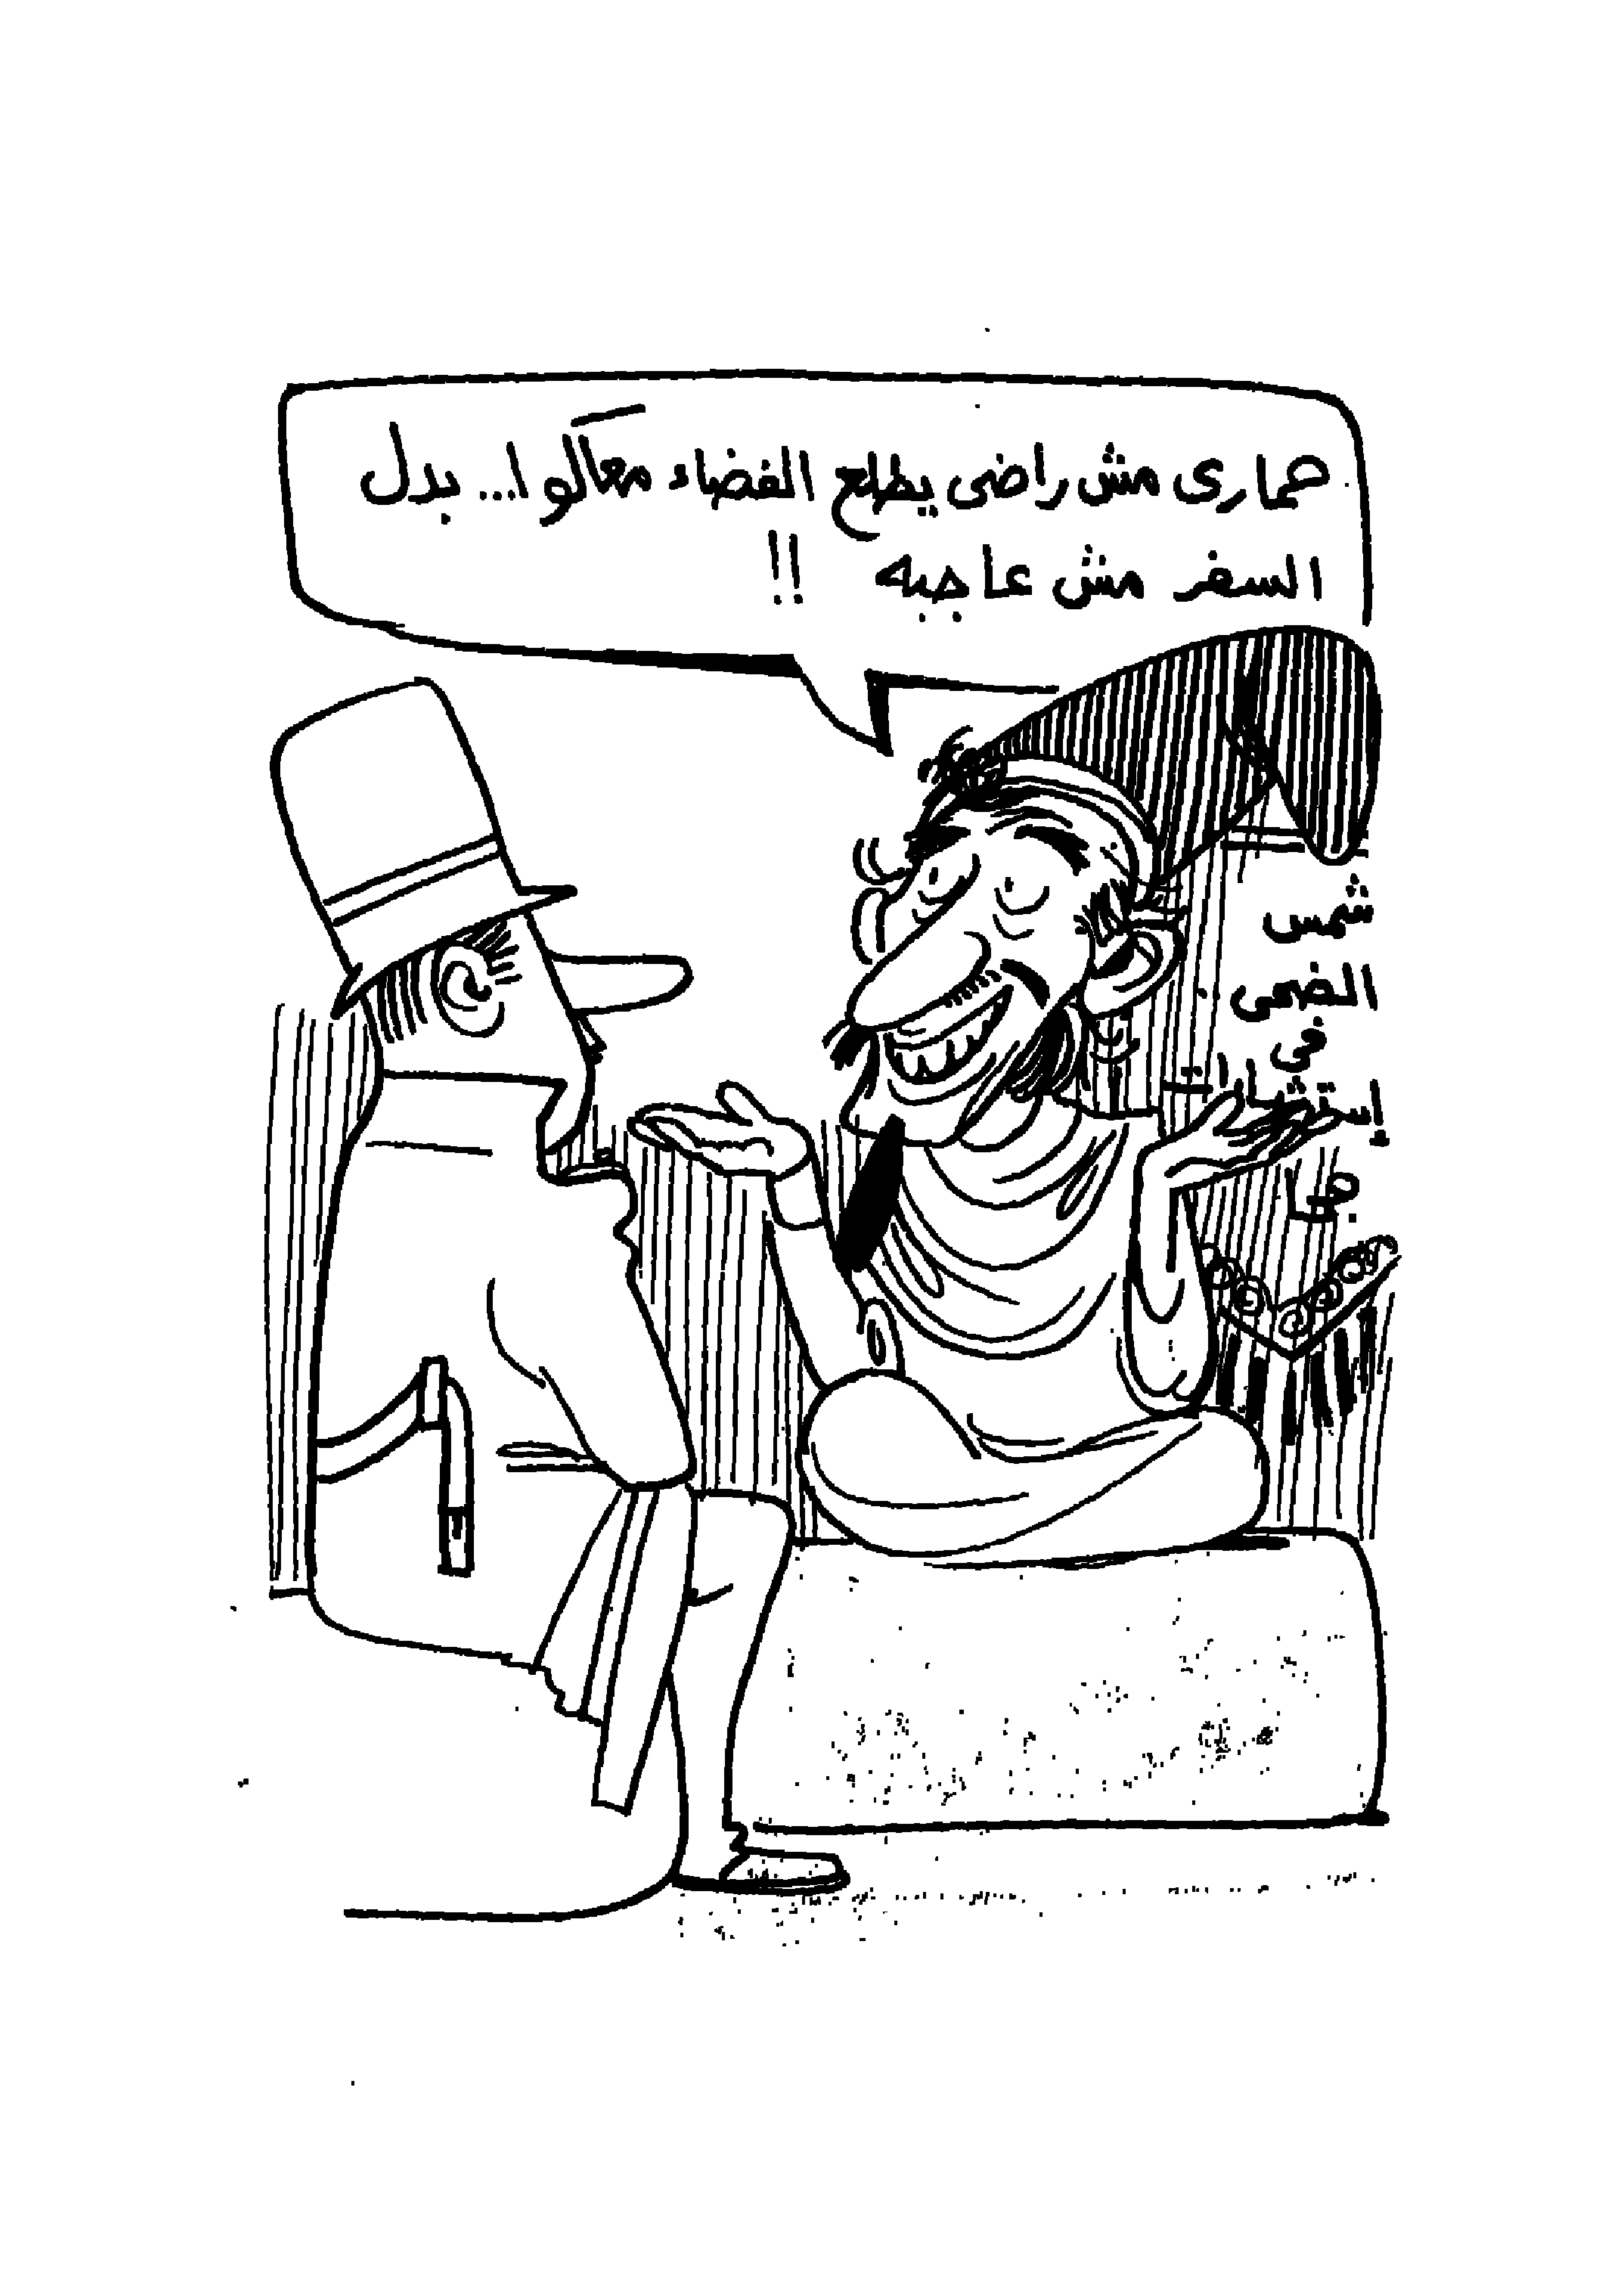 حمارى مش راضى يطلع الفضاء معاكوا... بدل
السفر مش عاجبه !!
شمس
الضحى
فى
إستشارات
جحا